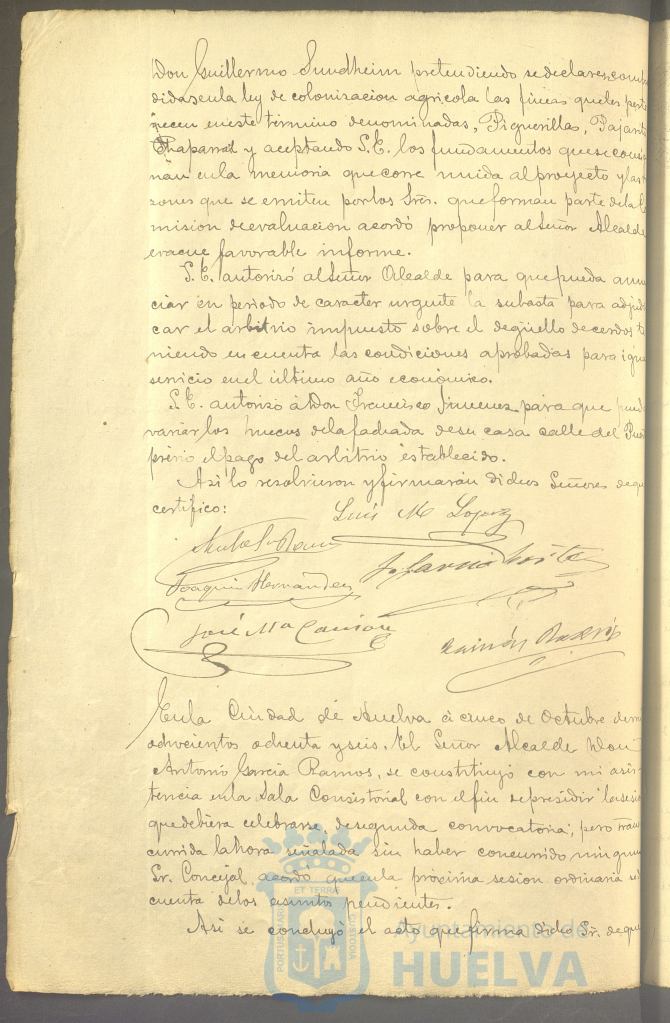 Don Guillermo Sundheim pretendiendo se declaren com
didas en la ley de colonizacion agricola las fincas que les perte
necen en este término denominadas, Piguerillas, Pajarito
Chaparral y aceptando S.E. los fundamentos que se consig
nan en la memoria que corre unida al proyecto y las
zones que se emiten por los Sres. que forman parte de la Co
mision de evaluacion acordó proponer al Señor Alcalde
evacue favorable informe.
S.E. autorizó al Señor Alcalde para que pueda anun
ciar en periodo de caracter urgente la subasta para adjudi
car el arbitrio impuesto sobre el degüello de cerdos te
niendo en cuenta las condiciones aprobadas para igual
servicio en el último año económico.
S.E. autorizó á Don Francisco Jimenez para que pueda
variar los huecos de la fachada de su casa calle del Puerto
prévio el pago del arbitrio establecido.
Asi lo resolvieron y firmarán dichos Señores de que
certifico:
Luis M Lopez
Joaquin Hernandez
José Ma
Ramón
En la Ciudad de Huelva á cinco de Octubre de mil
ochocientos ochenta y seis. El Señor Alcalde Don
Antonio Garcia Ramos, se constituyó con mi asis-
tencia en la Sala Consistorial con el fin de presidir la sesion
que debiera celebrarse, de segunda convocatoria; pero trans
currida la hora señalada sin haber concurrido ningun
Sr. Concejal, acordó que en la próxima sesion ordinaria se dé
cuenta de los asuntos pendientes.
Asi se concluyó el acto que firma dicho Sr. de que
PORTUS MARIS ET TERRAE CUSTODIA
Ayuntamiento de
HUELVA